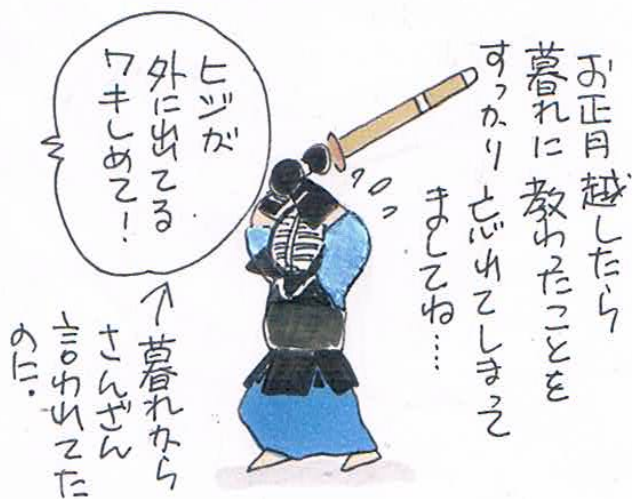 お正月越したら
暮れに教わったことを
すっかり忘れてしまって
ましてね・・・・
ヒジが
外に出てる
ワキしめて！
↑暮れから
さんざん
言われてた
のに・